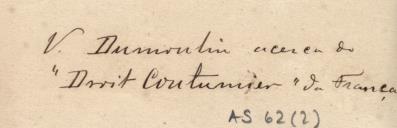 V. Dumoulin acerca do
"Droit Coutumier" da França
AS 62 (2)